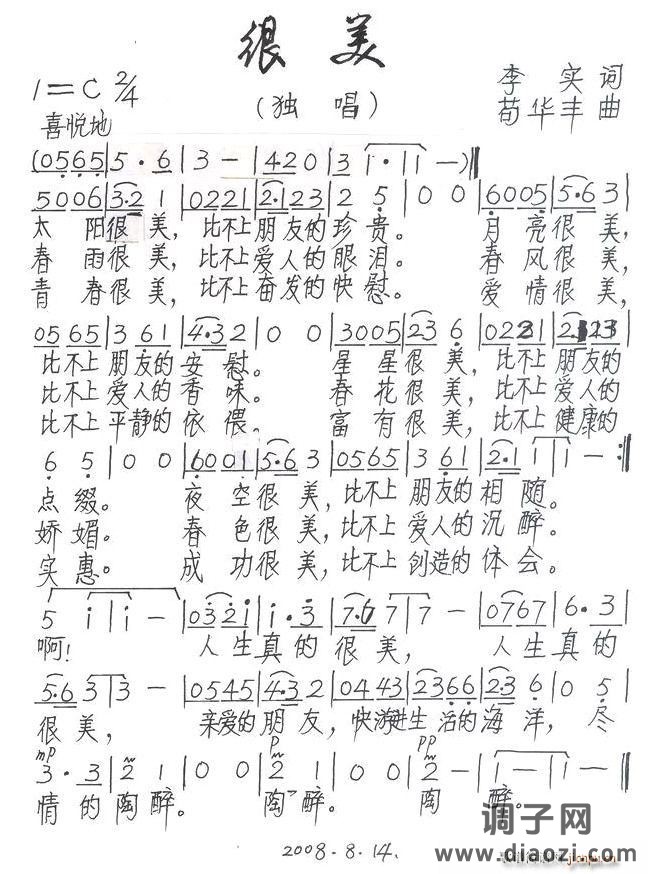 很 美
1=C 2/4
(独 唱)
李 实 词
荀华丰 曲
喜悦地
(0565|5·6|3-|4·20|3 1·|1-)‖
5006|3·2 1|0221|2·123|2 5|0 0|6005|5·63|
太 阳很 美, 比不上朋友的珍 贵。 月 亮很美,
春 雨很 美, 比不上爱人的眼 泪。 春 风很美,
青 春很 美, 比不上奋发的快 慰。 爱 情很美,
0565|3 61|4·32|0 0|3005|23 6|0221|2·123|
比不上 朋友的 安 慰。 星 星很 美, 比不上 朋友的
比不上 爱人的 香 味。 春 花很 美, 比不上 爱人的
比不上 平静的 依 偎。 富 有很 美, 比不上 健康的
6 5|0 0|6001|5·63|0565|3 61|2·1 1|1-:‖
点 缀。 夜 空很 美, 比不上 朋友的 相 随。
娇 媚。 春 色很 美, 比不上 爱人的 沉 醉。
实 惠。 成 功很 美, 比不上 创造的 体 会。
5 i|i-|03 2i|i·3|7·67|7-|0767|6·3|
啊! 人生真的 很 美, 人生真的
5·63|3-|0545|4·32|0443|2366|2·36|0 5|
很 美, 亲爱的朋 友, 快游进生活的海 洋, 尽
mp p pp
3·3|2 1|0 0|2 1|0 0|2-|1-|1-‖
情 的陶醉。 陶 醉。 陶 醉。
2008.8.14.
调子网
www.diaozi.com